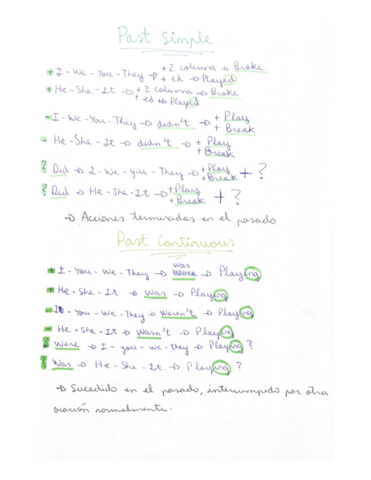 Past Simple
+ I - We - You - They → + 2 columna → Broke
+ ed → Played
+ He - She - It → + 2 columna → Broke
+ ed → Played
- I - We - You - They → didn't → + Play
+ Break
- He - She - It → didn't → + Play
+ Break
? Did → I - We - you - They → + Play + ?
+ Break
? Did → He - She - It → + Play + ?
+ Break
→ Acciones terminadas en el pasado
Past Continuous
was
+ I - You - We - They → were → Playing
+ He - She - It → Was → Playing
- You - We - They → Weren't → Playing
- He - She - It → Wasn't → Playing
? Were → I - you - we - they → Playing?
? Was → He - She - It → Playing?
→ Sucedido en el pasado, interrumpido por otra
oración normalmente.